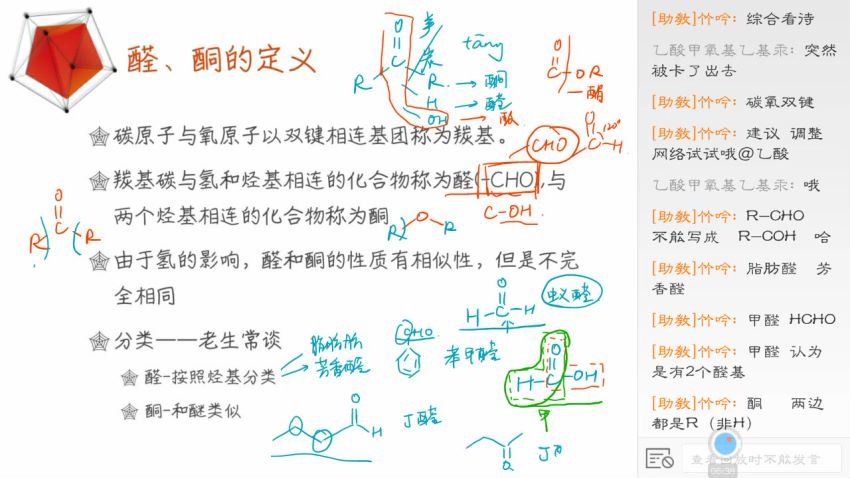 醛、酮的定义
碳原子与氧原子以双键相连基团称为羰基。
羰基碳与氢和烃基相连的化合物称为醛(-CHO),与
两个烃基相连的化合物称为酮
由于氢的影响，醛和酮的性质有相似性，但是不完
全相同
分类——老生常谈
醛-按照烃基分类
酮-和醚类似
tāng
O
C
R
R → 酮
H → 醛
OH → 酸
O
C-OR
酯
CHO
O
C-H
120°
C-OH
R O R
O
R C R
脂肪醛
芳香醛
CHO
苯甲醛
O
H-C-H
蚁醛
O
H-C-OH
甲
O
H
丁醛
O
丁
[助教]竹吟：综合看诗
乙酸甲氧基乙基汞：突然
被卡了出去
[助教]竹吟：碳氧双键
[助教]竹吟：建议 调整
网络试试哦@乙酸
乙酸甲氧基乙基汞：哦
[助教]竹吟：R-CHO
不能写成 R-COH 哈
[助教]竹吟：脂肪醛 芳
香醛
[助教]竹吟：甲醛 HCHO
[助教]竹吟：甲醛 认为
是有2个醛基
[助教]竹吟：酮 两边
都是R（非H）
查看回放时不能发言
06:38